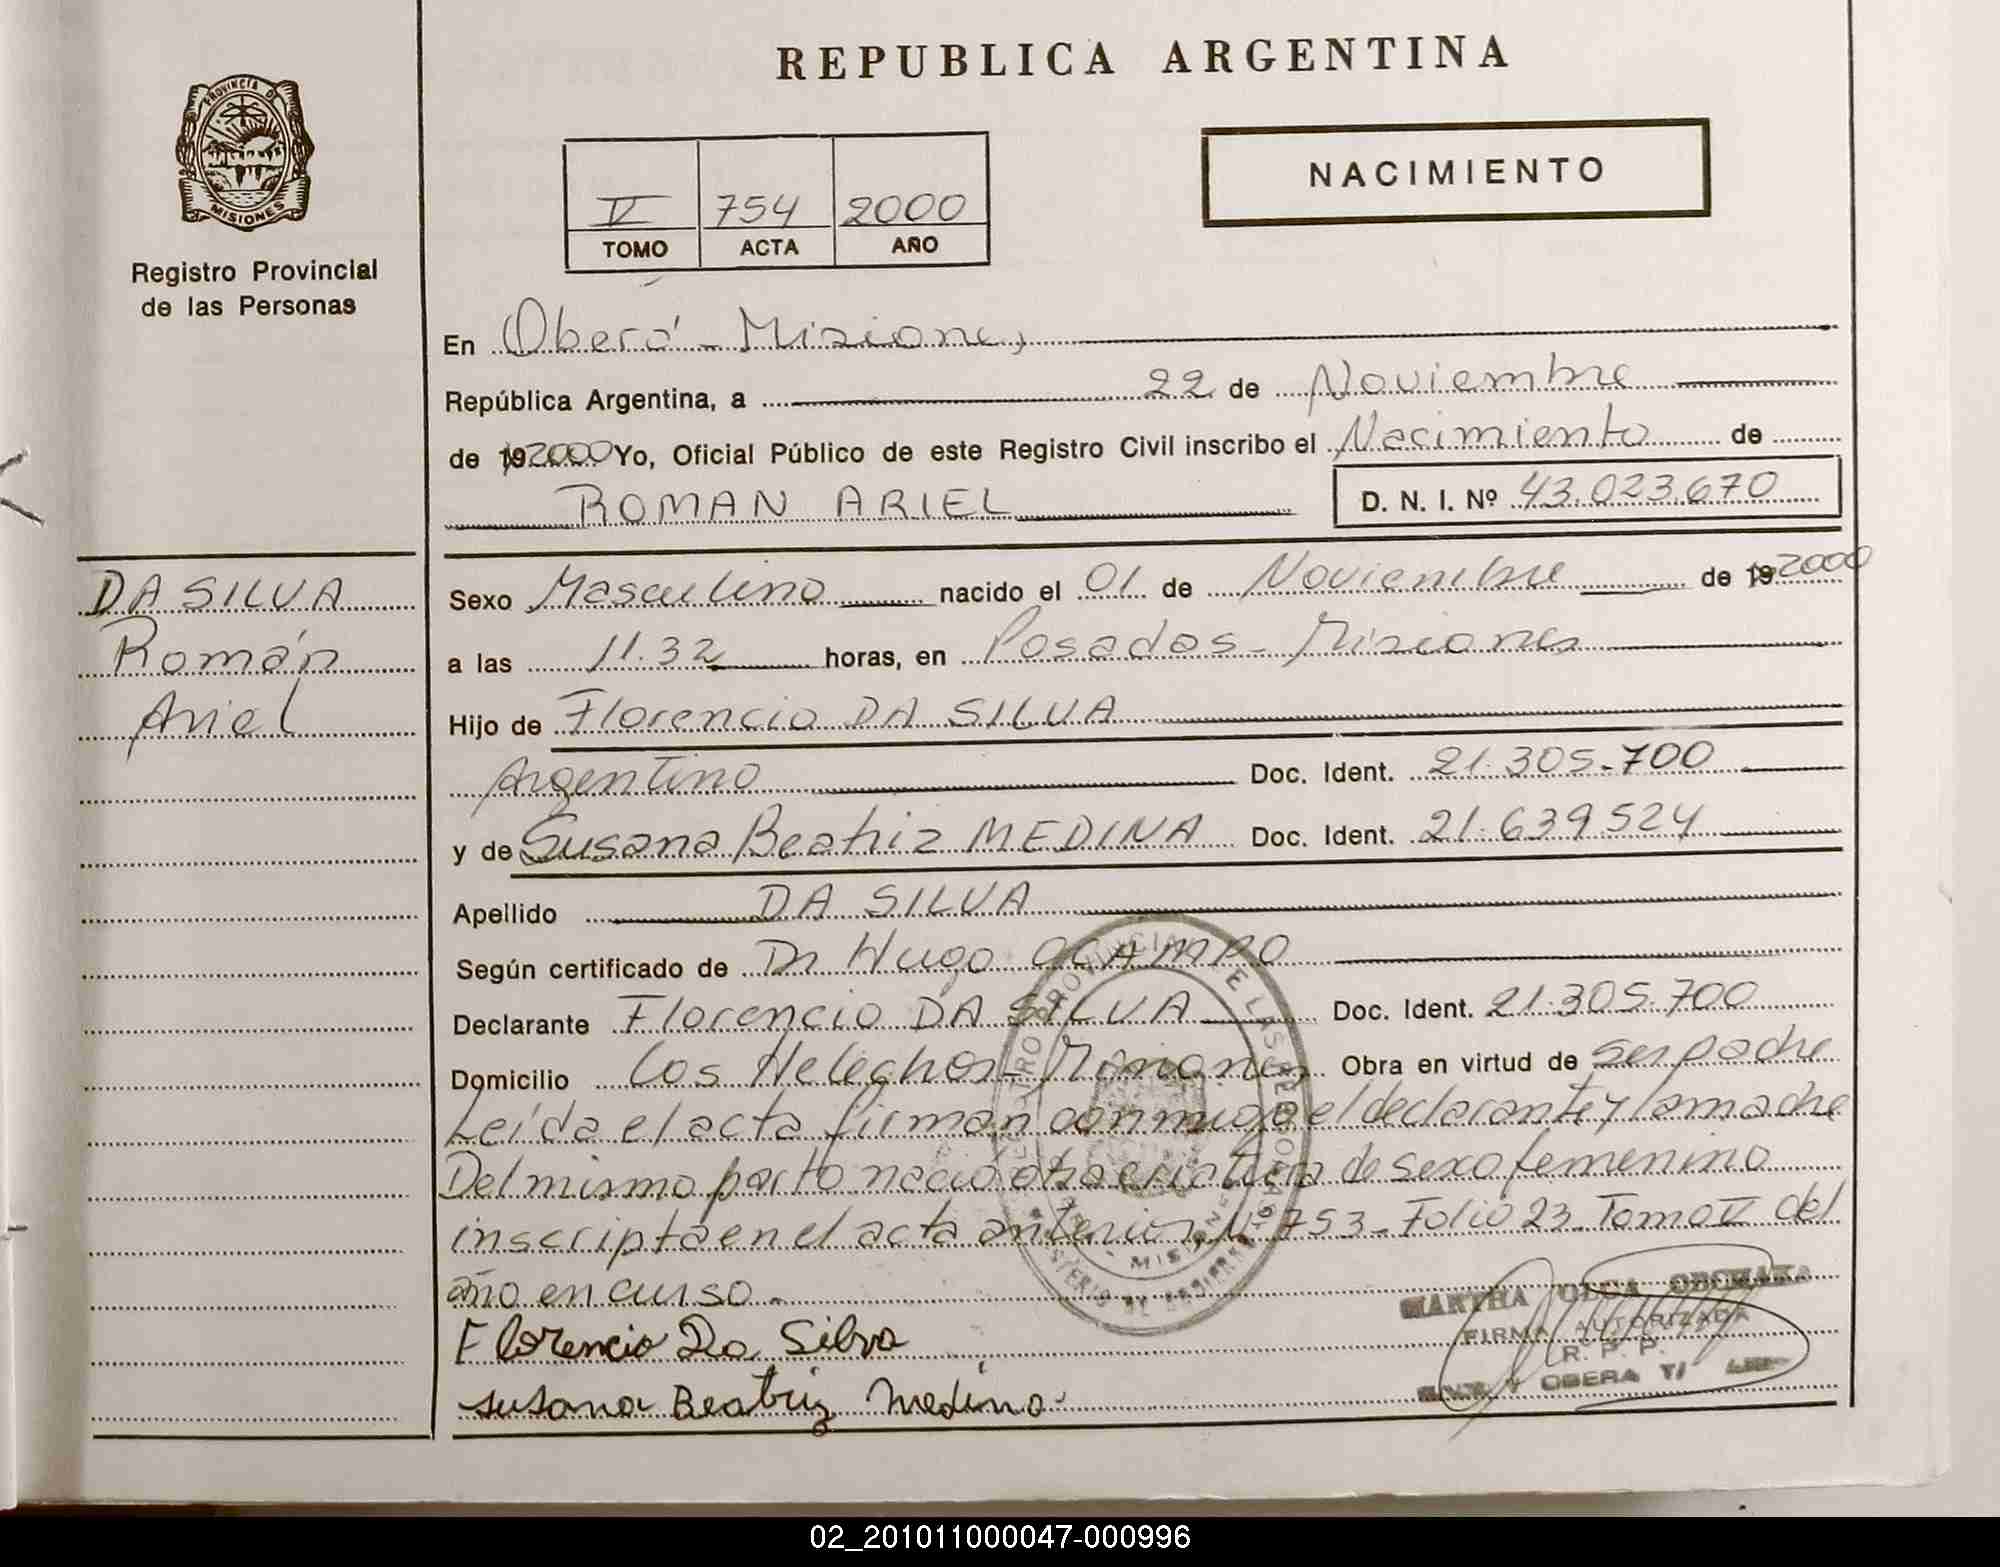 REPUBLICA ARGENTINA
PROVINCIA DE
MISIONES
Registro Provincial
de las Personas
V 754 2000
TOMO ACTA AÑO
NACIMIENTO
En Oberá - Misiones
República Argentina, a 22 de Noviembre
de 192000 Yo, Oficial Público de este Registro Civil inscribo el Nacimiento de
ROMAN ARIEL D. N. I. Nº 43.023.670
DA SILVA
Román
Ariel
Sexo Masculino nacido el 01 de Noviembre de 192000
a las 11.32 horas, en Posadas - Misiones
Hijo de Florencio DA SILVA
Argentino Doc. Ident. 21.305.700
y de Susana Beatriz MEDINA Doc. Ident. 21.639.524
Apellido DA SILVA
Según certificado de Dr Hugo OCAMPO
Declarante Florencio DA SILVA Doc. Ident. 21.305.700
Domicilio Los Helechos - Misiones Obra en virtud de ser padre
Leída el acta firman conmigo el declarante y la madre
Del mismo parto nació otra criatura de sexo femenino
inscripta en el acta anterior, Nº 753 - Folio 23 - Tomo V del
año en curso.
Florencio Da Silva
Susana Beatriz Medina
MARTHA OLGA
FIRMA AUTORIZADA
R. P. P.
OBERA
02_201011000047-000996